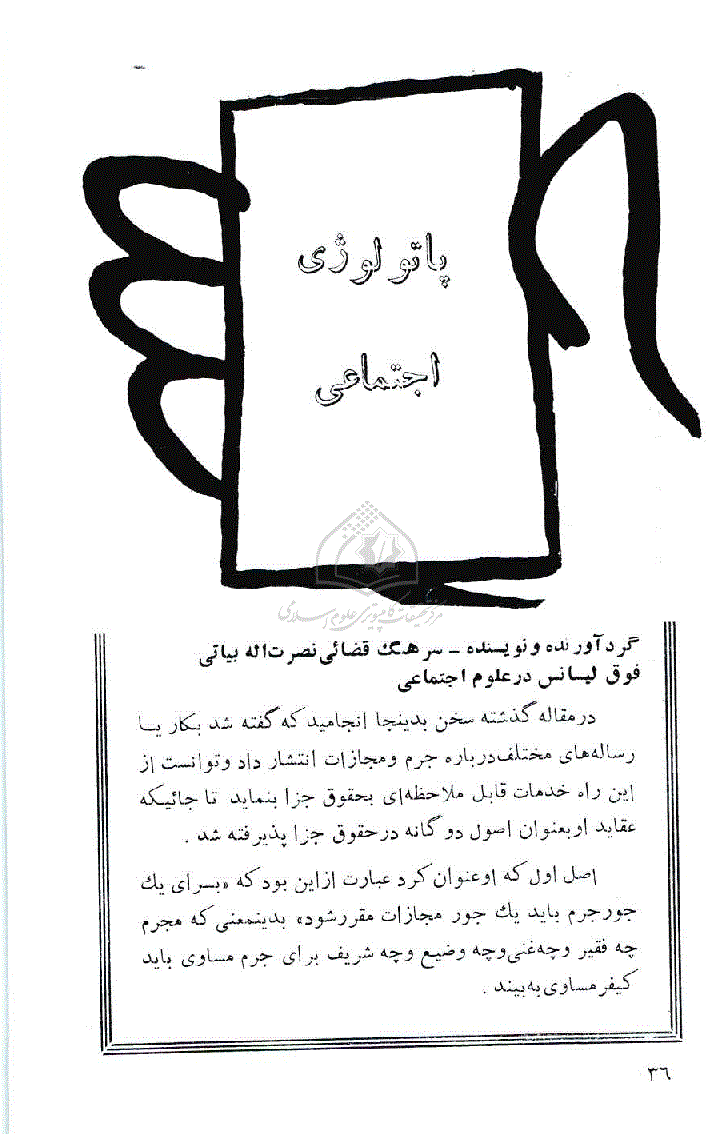 پاتولوژی
اجتماعی
مرکز تحقیقات کامپیوتری علوم اسلامی
گردآورنده و نویسنده ــ سرهنگ قضائی نصرت‌اله بیاتی
فوق لیسانس در علوم اجتماعی
در مقاله گذشته سخن بدینجا انجامید که گفته شد بکار یا
رساله‌های مختلف درباره جرم و مجازات انتشار داد و توانست از
این راه خدمات قابل ملاحظه‌ای بحقوق جزا بنماید تا جائیکه
عقاید او بعنوان اصول دو گانه در حقوق جزا پذیرفته شد .
اصل اول که او عنوان کرد عبارت از این بود که «برای یك
جور جرم باید یك جور مجازات مقرر شود» بدینمعنی که مجرم
چه فقیر و چه غنی و چه وضیع و چه شریف برای جرم مساوی باید
کیفر مساوی به بیند .
۳۶